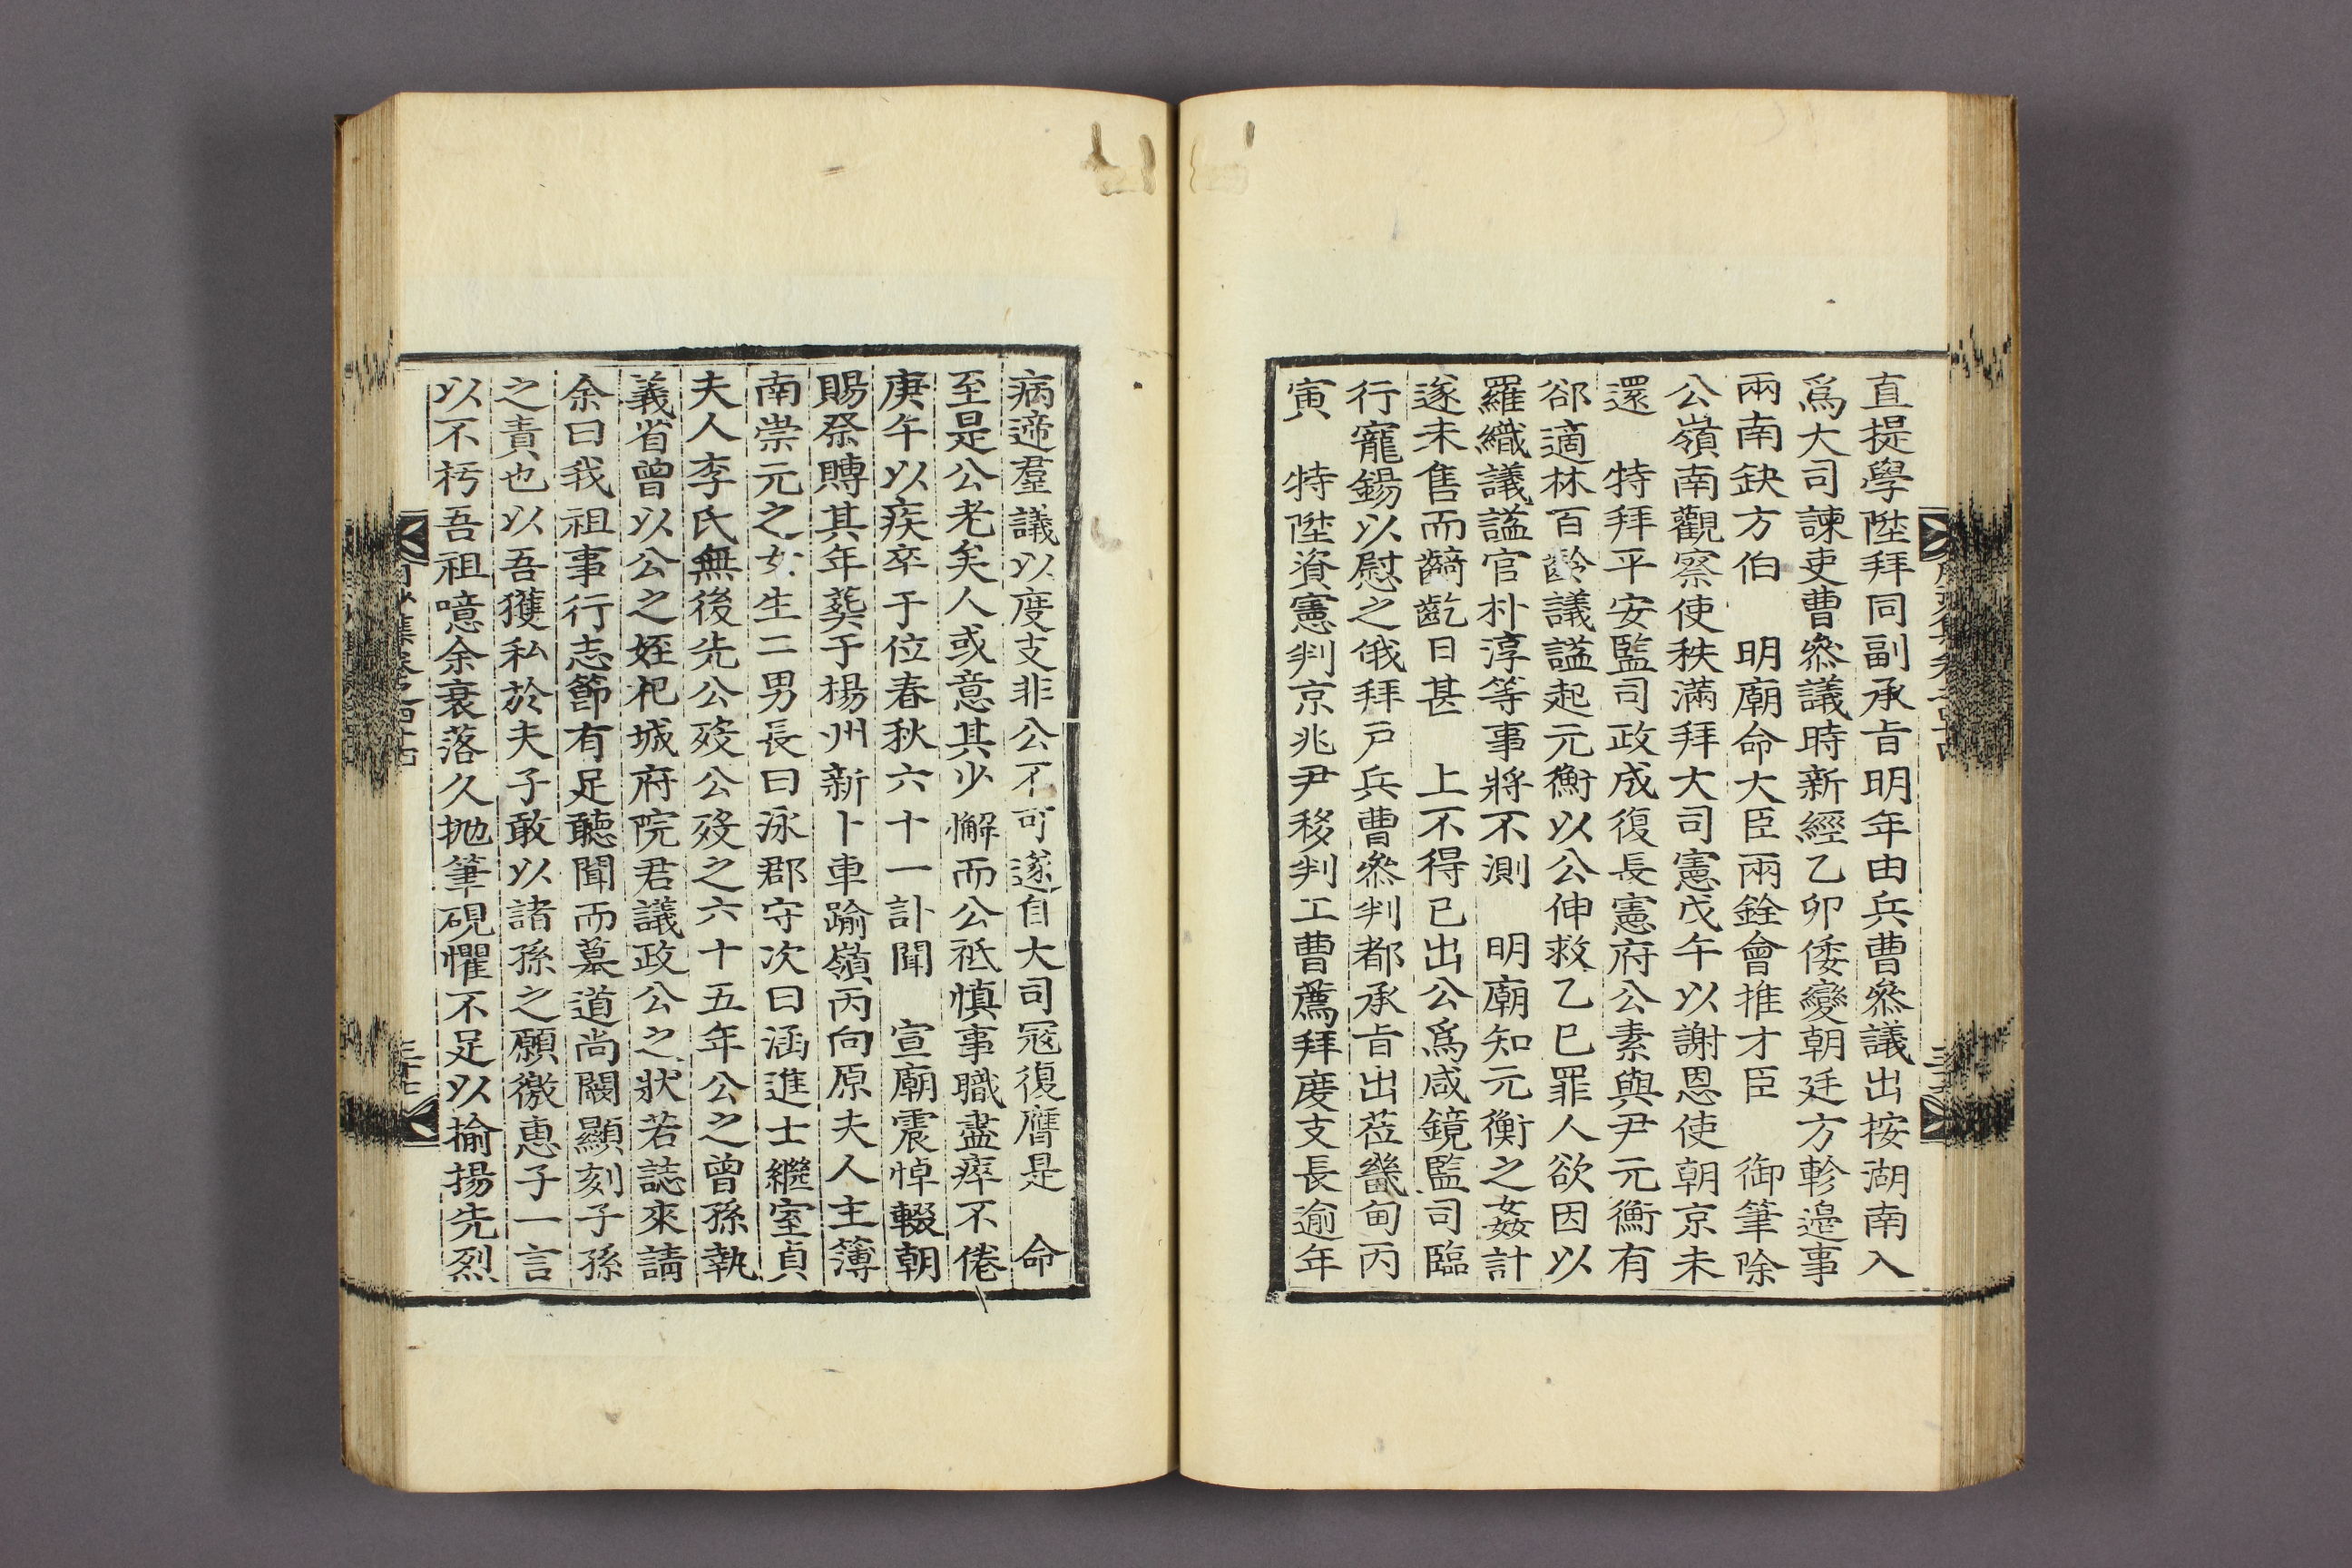 直提學陞拜同副承旨明年由兵曹叅議出按湖南入
爲大司諫吏曹叅議時新經乙卯倭變朝廷方軫邉事
兩南缺方伯 明廟命大臣兩銓會推才臣 御筆除
公嶺南觀察使秩滿拜大司憲戊午以謝恩使朝京未
還 特拜平安監司政成復長憲府公素與尹元衡有
郤適林百齡議謚起元衡以公伸救乙巳罪人欲因以
羅織議謚官朴淳等事將不測 明廟知元衡之姦計
遂未售而齮齕日甚 上不得已出公爲咸鏡監司臨
行寵錫以慰之俄拜戸兵曹叅判都承旨出莅畿甸丙
寅 特陞資憲判京兆尹移判工曹薦拜度支長逾年
病遞羣議以度支非公不可遂自大司冦復膺是 命
至是公老矣人或意其少懈而公祗慎事職盡瘁不倦
庚午以疾卒于位春秋六十一訃聞 宣廟震悼輟朝
賜祭賻其年葬于楊州新卜車踰嶺丙向原夫人主簿
南崇元之女生二男長曰泳郡守次曰涵進士繼室貞
夫人李氏無後先公歿公歿之六十五年公之曾孫執
義省曾以公之姪杞城府院君議政公之狀若誌來請
余曰我祖事行志節有足聽聞而墓道尚闕顯刻子孫
之責也以吾獲私於夫子敢以諸孫之願徼惠子一言
以不朽吾祖噫余衰落久抛筆硯懼不足以揄揚先烈